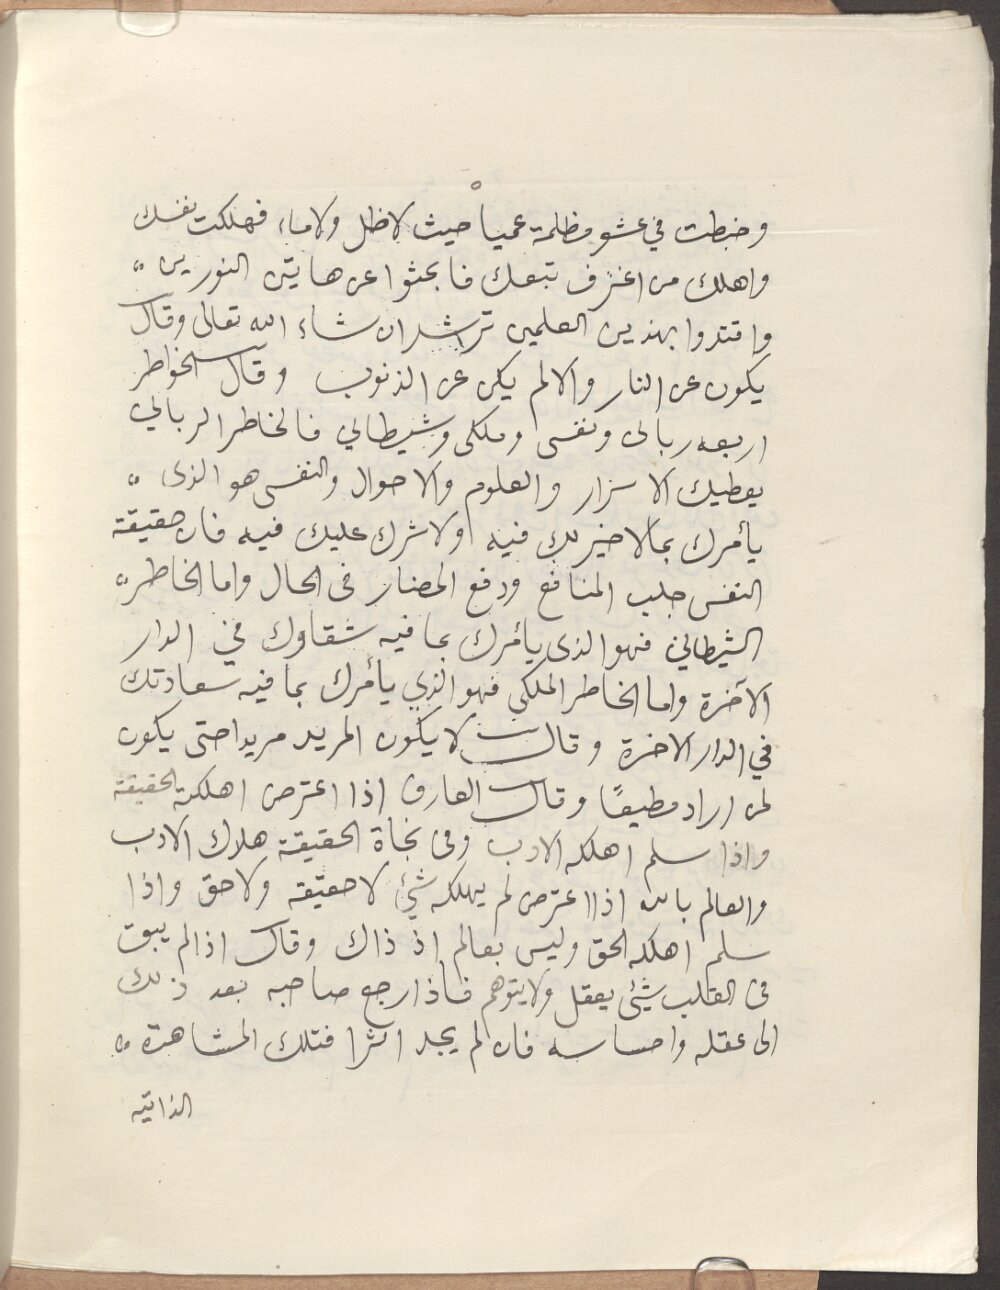 ٥
وخبطت في عشو مظلمة عمياً حيث لا ظل ولا ماء فهلكت نفسك
واهلك من اغترف تبعك فابحثوا عن هايتن النورين
واقتدوا بهذين العلمين ترشدان شاء الله تعالى وقال
يكون عن النار والالم يكن عن الذنوب وقال الخواطر
اربعه ربانى ونفسى وملكى وشيطاني فالخاطر الرباني
يعطيك الاسرار والعلوم والاحوال والنفسى هو الذى
يأمرك بمالاخير لك فيه ولاشرك عليك فيه فان حقيقة
النفس جلب المنافع ودفع المضار فى الحال واما الخاطر
الشيطاني فهو الذى يأمرك بما فيه شقاوك في الدار
الآخرة واما الخاطر الملكى فهو الذي يأمرك بما فيه سعادتك
في الدار الاخرة وقال لا يكون المريد مريدا حتى يكون
لمن اراد مطيعًا وقال العارف اذا اعترض اهلكته الحقيقة
واذا سلم اهلكه الادب وفى نجاة الحقيقة هلاك الادب
والعالم بالله اذا اعترض لم يهلكه شئ لا حقيقه ولا حق واذا
سلم اهلكه الحق وليس بعالم اذ ذاك وقال اذا لم يبق
فى القلب شئ يعقل ولايتوهم فاذا رجع صاحبه بعد ذلك
الى عقله واحساسه فان لم يجد اثرا فتلك المشاهدة
الذاتيه